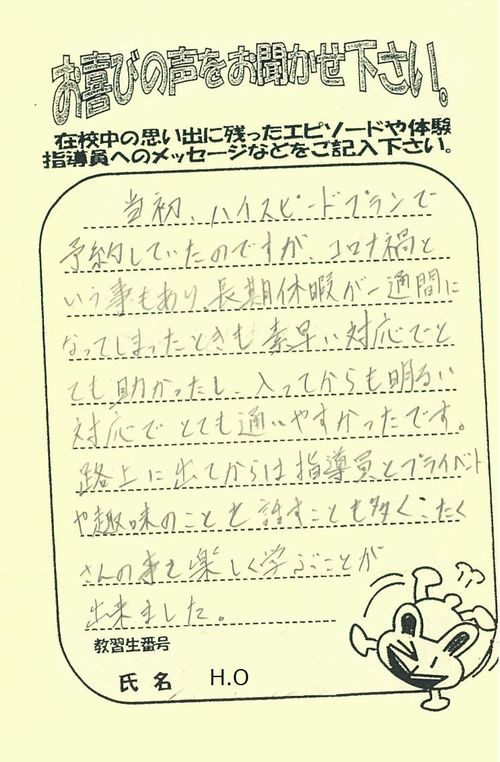 お喜びの声をお聞かせ下さい。
在校中の思い出に残ったエピソードや体験
指導員へのメッセージなどをご記入下さい。
当初、ハイスピードプランで
予約していたのですが、コロナ禍と
いう事もあり、長期休暇が一通間に
なってしまったときも素早い対応でと
ても助かったし、入ってからも明るい
対応でとても通いやすかったです。
路上に出てからは指導員とプライベント
や趣味のことを話すことも多く、たく
さんの事を楽しく学ぶことが
出来ました。
教習生番号
氏名 H.O